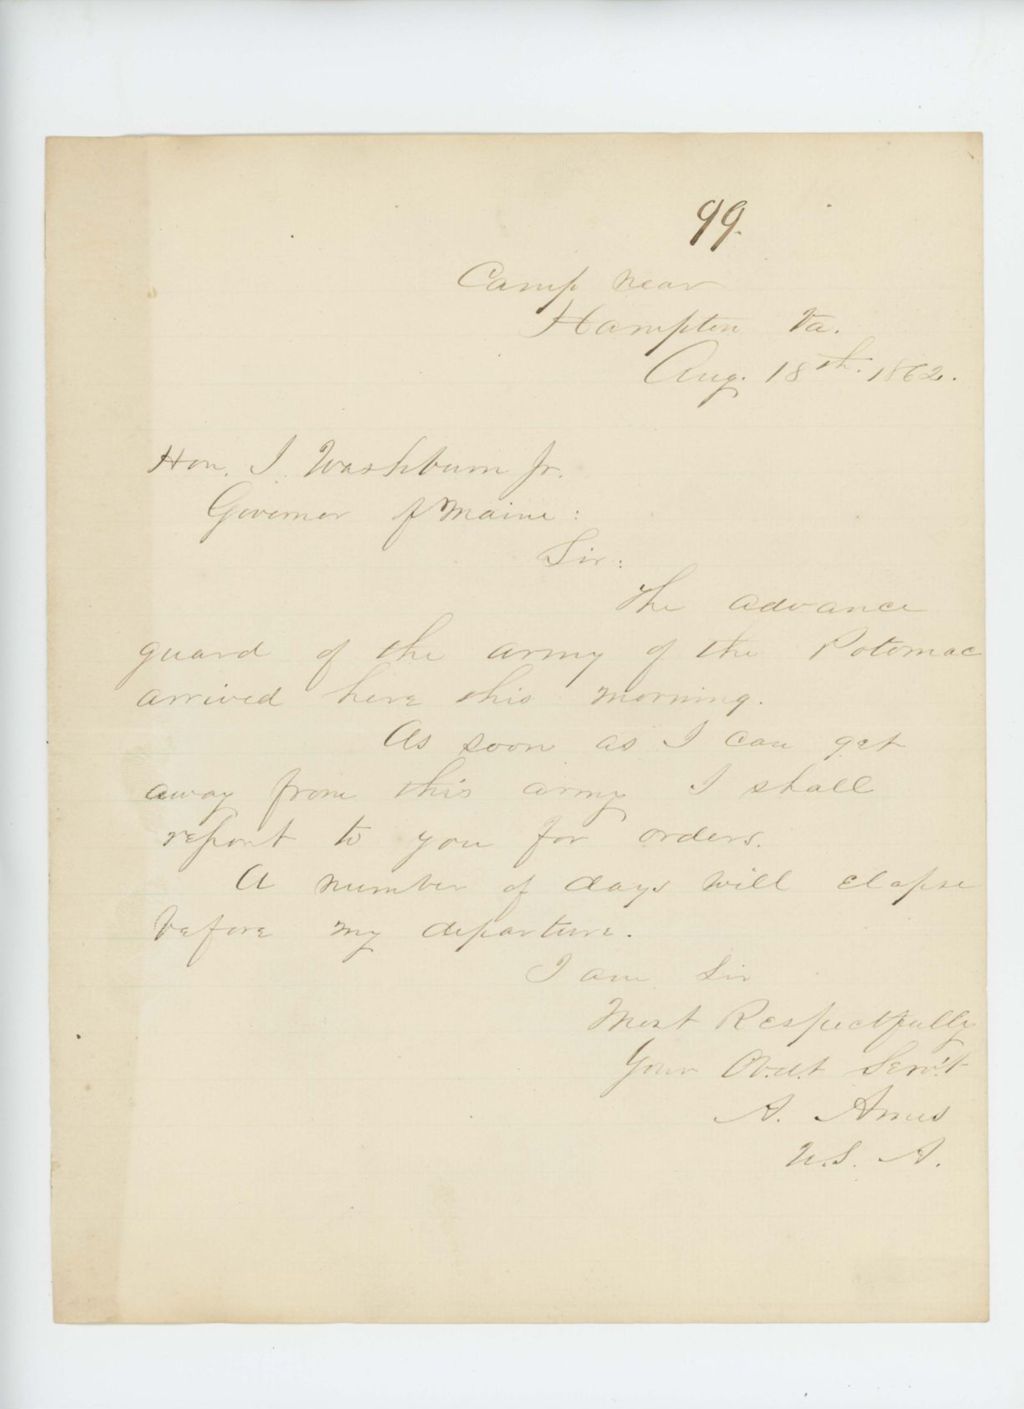 99.
Camp near
Hampton Va.
Aug. 18th. 1862.
Hon. I. Washburn Jr.
Governor of Maine:
Sir:
The advance
guard of the army of the Potomac
arrived here this morning.
As soon as I can get
away from this army I shall
report to you for orders.
A number of days will elapse
before my departure.
I am Sir
Most Respectfully
Your Ob.d.t Serv't
A. Ames
U.S. A.